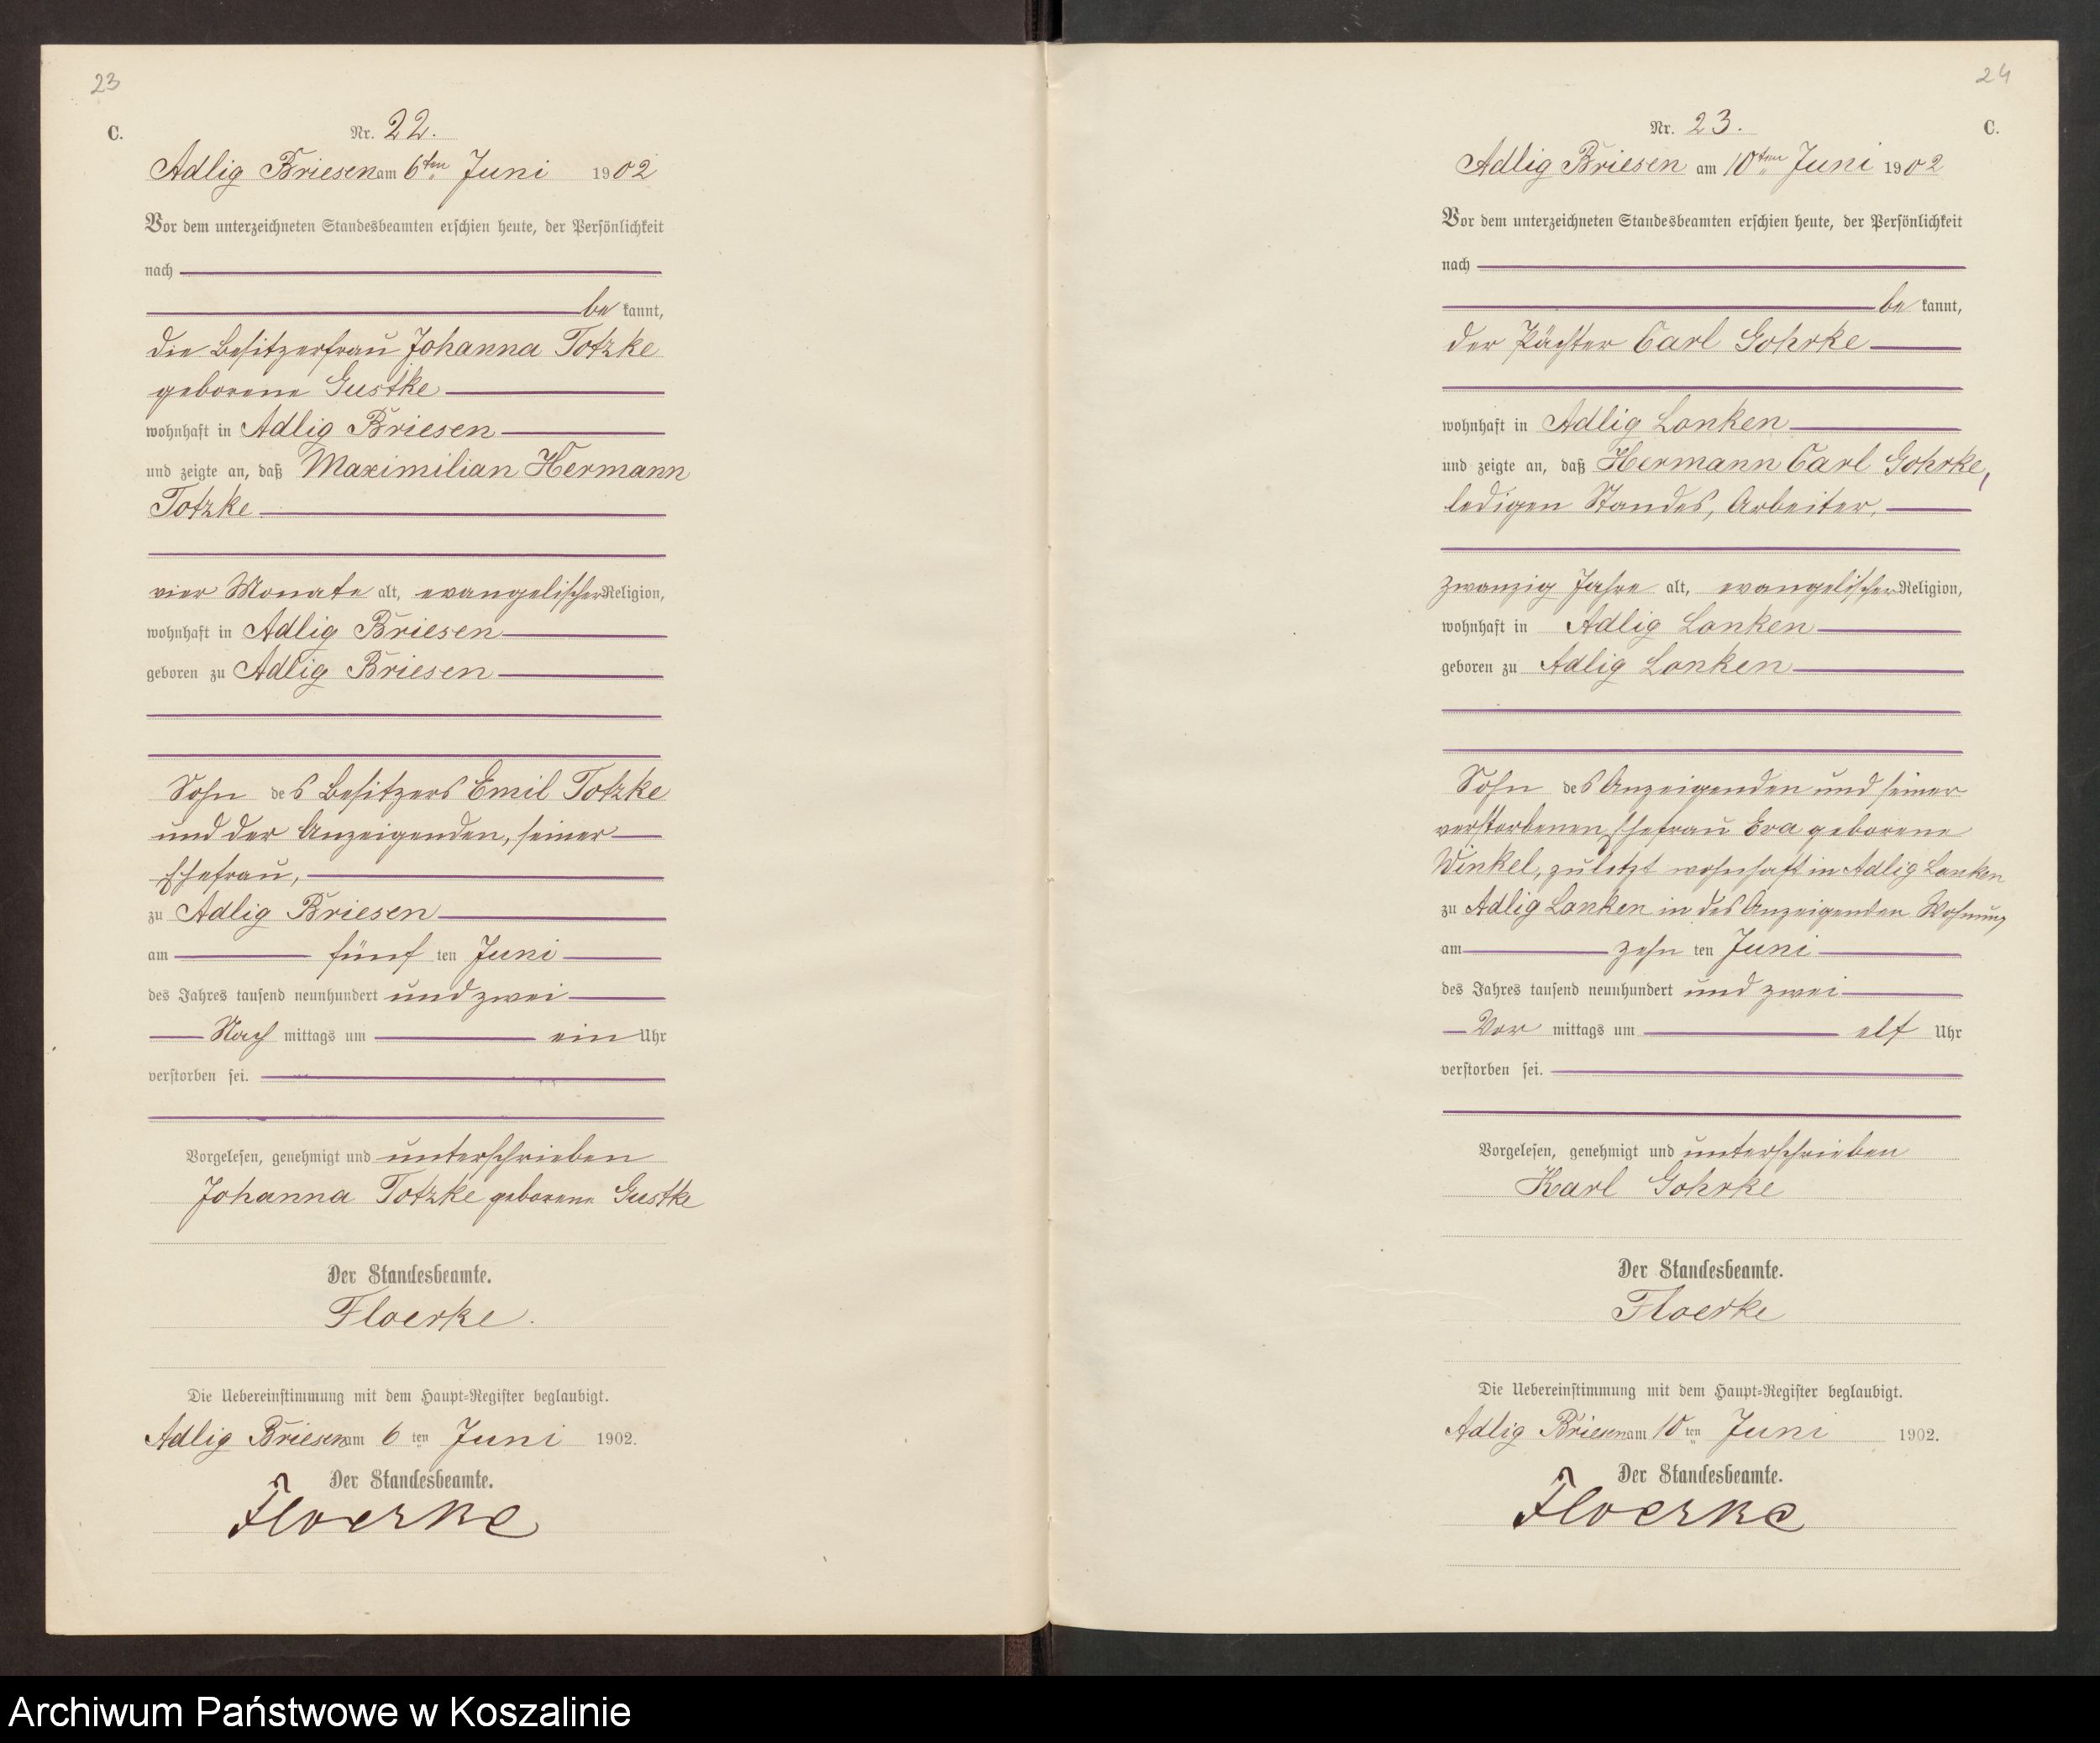 23
C.
Nr. 22.
Adlig Briesen am 6ten Juni 1902
Vor dem unterzeichneten Standesbeamten erschien heute, der Persönlichkeit
nach
be kannt,
die Besitzerfrau Johanna Totzke
geborene Gustke
wohnhaft in Adlig Briesen
und zeigte an, daß Maximilian Hermann
Totzke
vier Monate alt, evangelischer Religion,
wohnhaft in Adlig Briesen
geboren zu Adlig Briesen
Sohn des Besitzers Emil Totzke
und der Anzeigenden, seiner
Ehefrau,
zu Adlig Briesen
am fünf ten Juni
des Jahres tausend neunhundert und zwei
Nach mittags um ein Uhr
verstorben sei.
Vorgelesen, genehmigt und unterschrieben
Johanna Totzke geborene Gustke
Der Standesbeamte.
Floerke.
Die Uebereinstimmung mit dem Haupt-Register beglaubigt.
Adlig Briesen am 6 ten Juni 1902.
Der Standesbeamte.
Floerke
24
C.
Nr. 23.
Adlig Briesen am 10ten Juni 1902
Vor dem unterzeichneten Standesbeamten erschien heute, der Persönlichkeit
nach
be kannt,
der Pächter Carl Gohrke
wohnhaft in Adlig Lanken
und zeigte an, daß Hermann Carl Gohrke,
ledigen Standes, Arbeiter,
zwanzig Jahre alt, evangelischer Religion,
wohnhaft in Adlig Lanken
geboren zu Adlig Lanken
Sohn des Anzeigenden und seiner
verstorbenen Ehefrau Eva geborene
Winkel, zuletzt wohnhaft in Adlig Lanken
zu Adlig Lanken in des Anzeigenden Wohnung
am zehn ten Juni
des Jahres tausend neunhundert und zwei
Vor mittags um elf Uhr
verstorben sei.
Vorgelesen, genehmigt und unterschrieben
Karl Gohrke
Der Standesbeamte.
Floerke
Die Uebereinstimmung mit dem Haupt-Register beglaubigt.
Adlig Briesen am 10 ten Juni 1902.
Der Standesbeamte.
Floerke
Archiwum Państwowe w Koszalinie